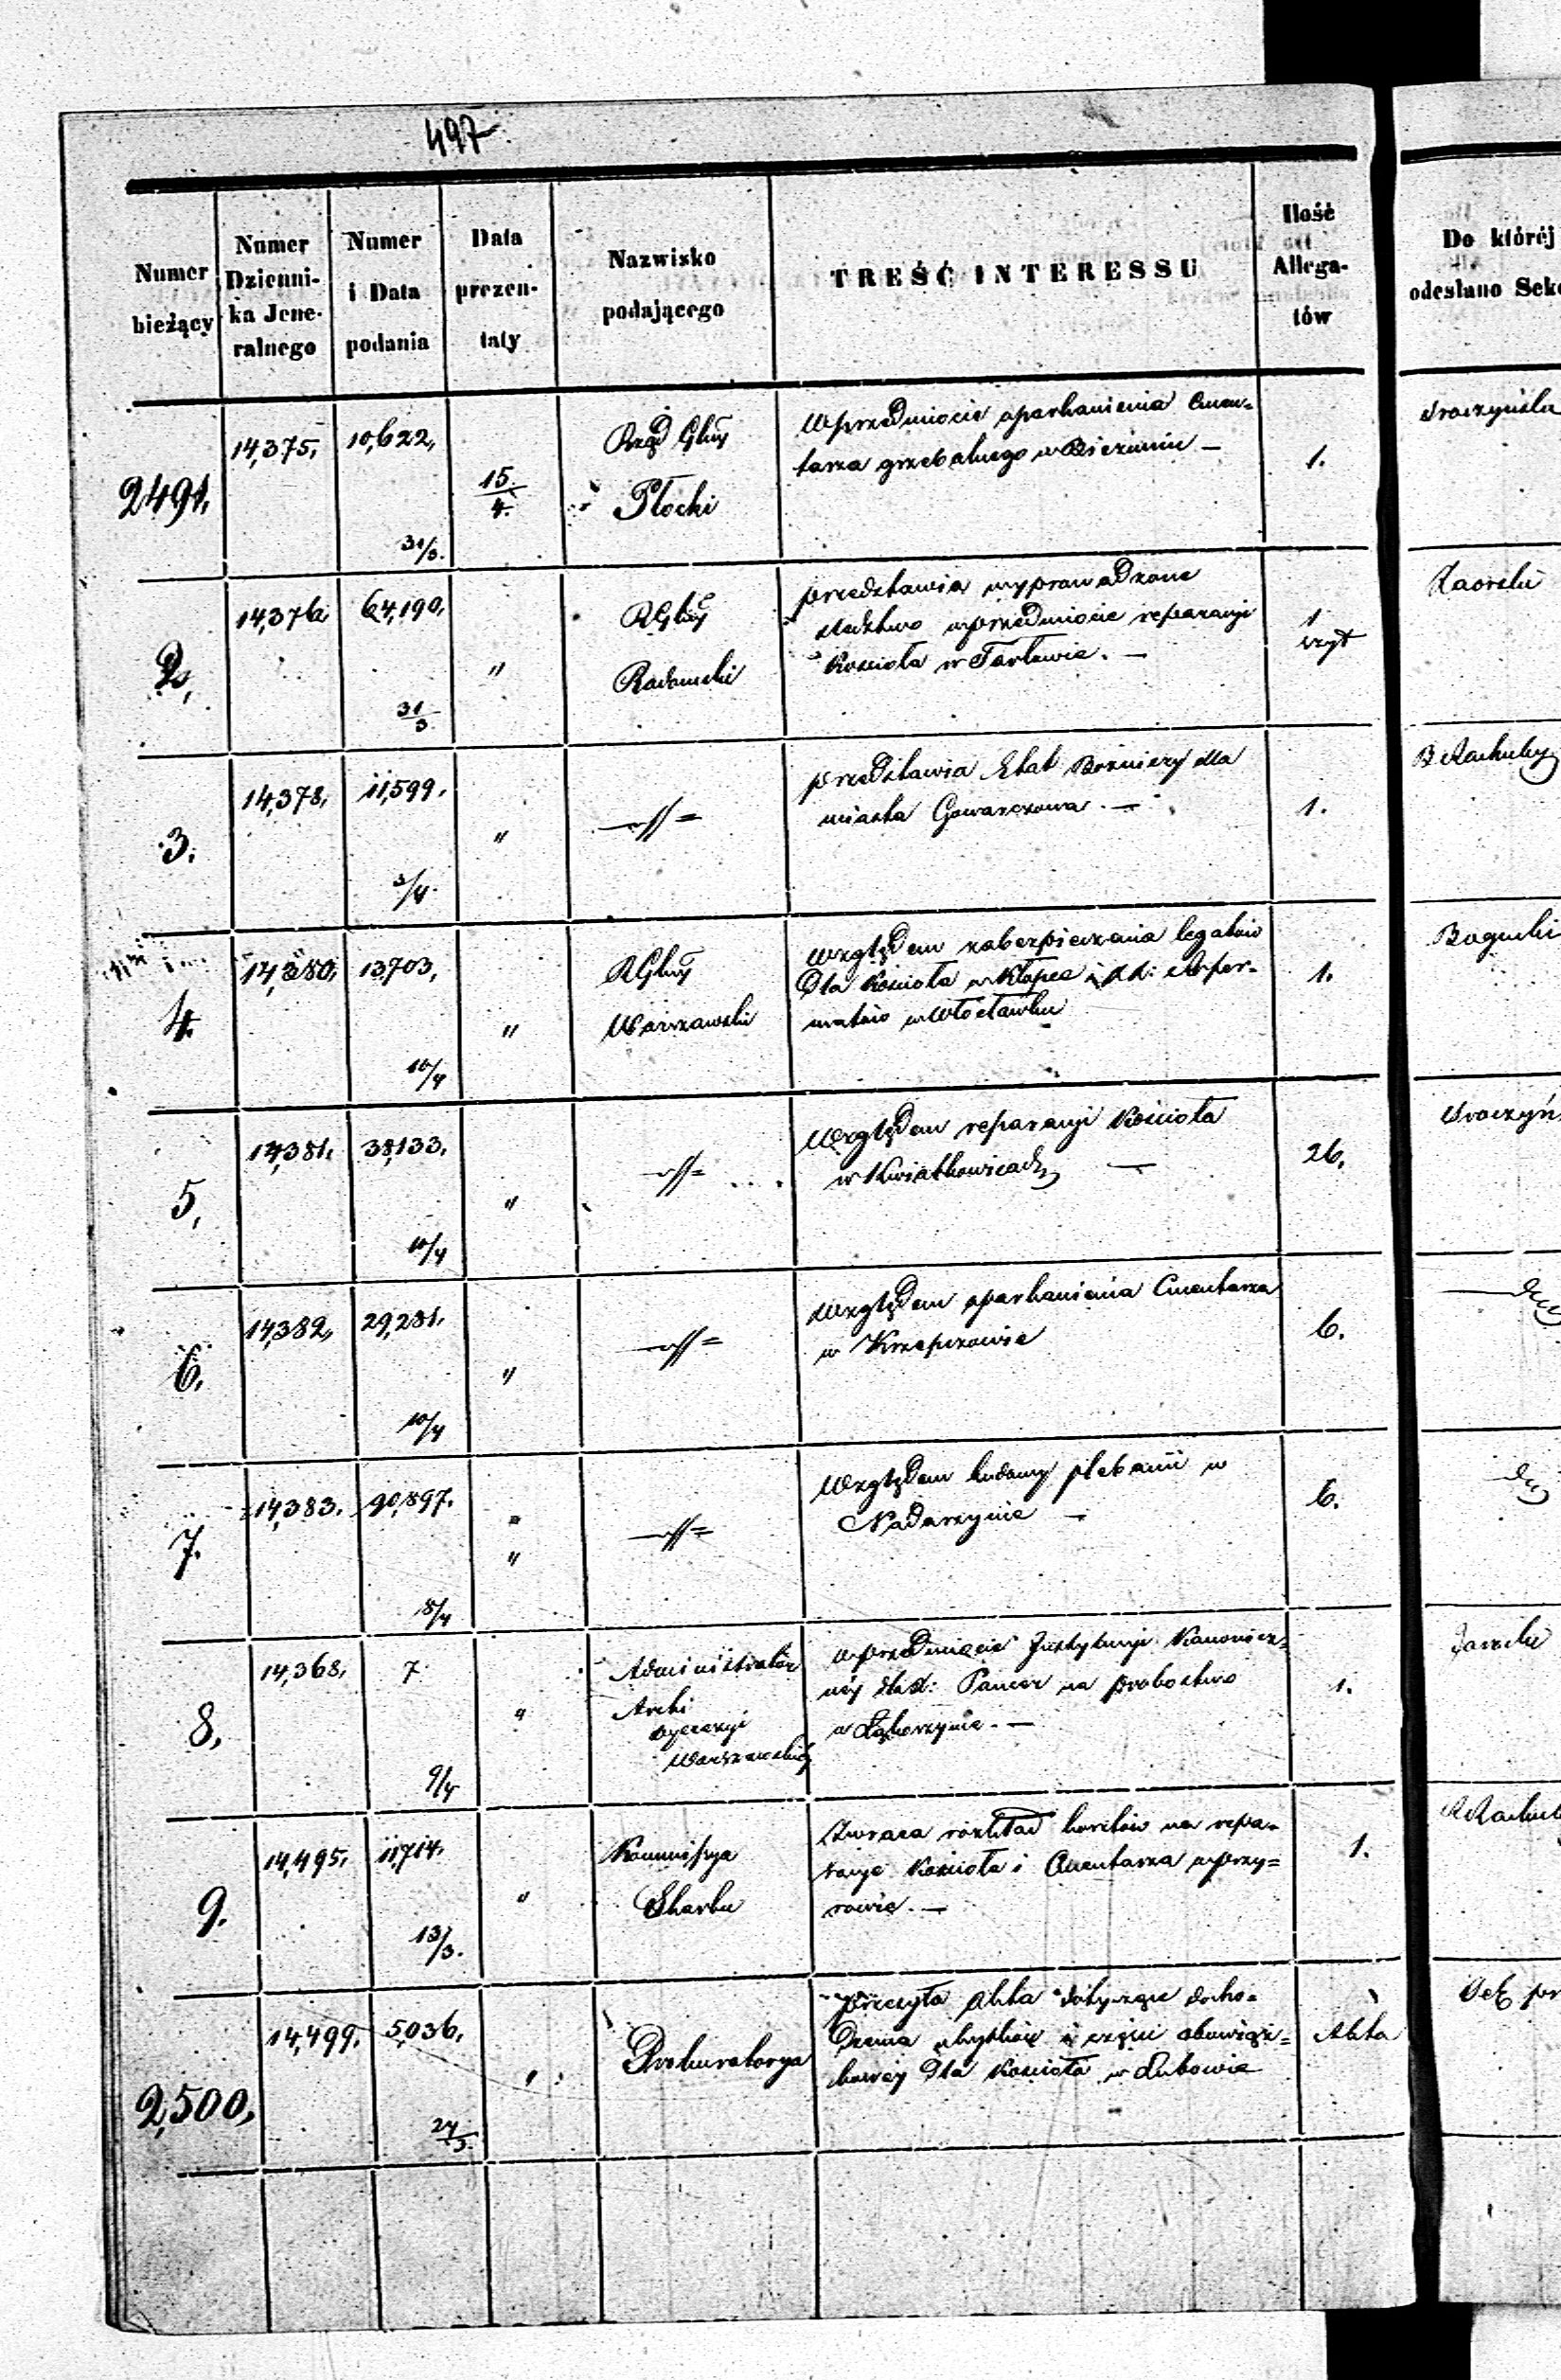 497
Numer bieżący
Numer Dzienni- ka Jene- ralnego
Numer i Data podania
Data prezen- taty
Nazwisko podającego
TREŚĆ INTERESSU
Ilość Allega- tów
Do któréj odesłano
2491.
14,375.
10,622,
31/3.
15/4.
Rząd Gbny
Płocki
W przedmiocie oparkanienia Cmen-
tarza grzebalnego w Bieżuniu —
1.
2,
14,376
64,190,
31/3.
"
RGbny
Radomski
przedstawia wyprowadzone
śledztwo w przedmiocie reparacyi
Kościoła w Tarłowie. —
1
Zaorski
3.
14,378,
11,599.
3/4.
"
przedstawia Etat Bożniczy dla
miasta Gowarczowa. —
1.
4.
14,380,
13703,
10/4
"
RGbny
Warszawski
Względem zabezpieczenia legatów
Dla Kościoła w Kłopce i
w Włocławku
1.
Bogucki
5,
14,381.
38,133.
10/4
"
Względem reparacyi Kościoła
w Kwiatkowicach —
26.
6.
14,382,
29,281.
10/4
"
Względem oparkanienia Cmentarza
w Krzepczowie
6.
7.
14,383.
90,897.
8/4
"
Względem budowy plebanii w
Nadarzynie —
6.
8,
14,368,
7
9/4
"
Administrator
Archi
dyecezyi
Warszawskiéj
w przedmiocie Instytucyi Kanonicz-
néj dla X: Pancer na probostwo
1.
9.
14,495,
11,714.
13/3.
"
Kommissya
Skarbu
Zwraca rozkład kosztów na repa-
racyę Kościoła i Cmentarza w Przy-
rowie. —
1.
2,500,
14,499,
5,036,
24/3.
"
Prokuratorya
przesyła Akta dotyczące docho-
dzenia
dla Kościoła w Łubowie
Akta